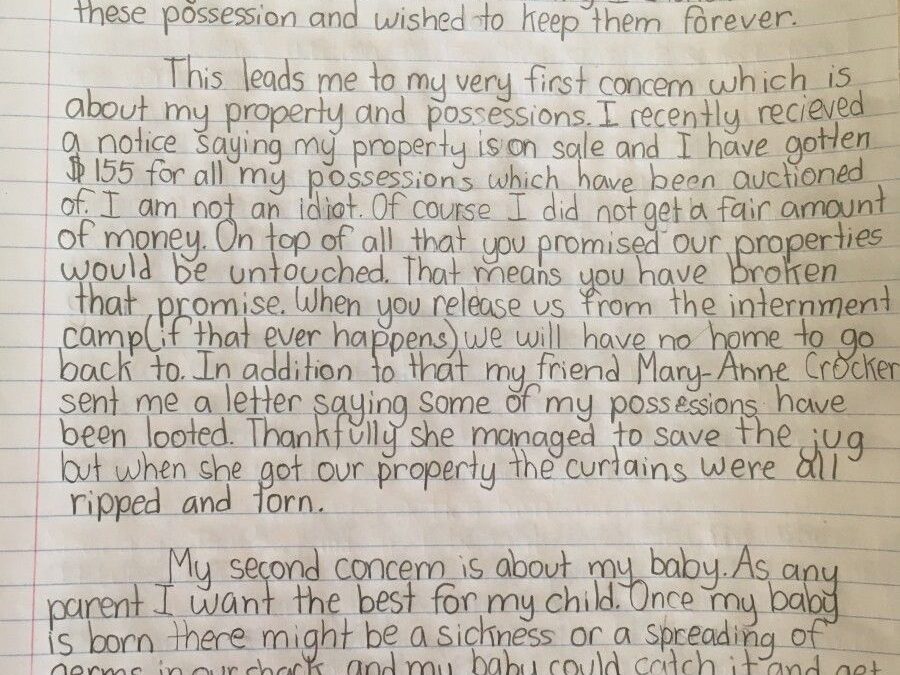 these possession and wished to keep them forever.
This leads me to my very first concern which is
about my property and possessions. I recently recieved
a notice saying my property is on sale and I have gotten
$155 for all my possessions which have been auctioned
of. I am not an idiot. Of course I did not get a fair amount
of money. On top of all that you promised our properties
would be untouched. That means you have broken
that promise. When you release us from the internment
camp(if that ever happens) we will have no home to go
back to. In addition to that my friend Mary-Anne Crocker
sent me a letter saying some of my possessions have
been looted. Thankfully she managed to save the jug
but when she got our property the curtains were all
ripped and torn.
My second concern is about my baby. As any
parent I want the best for my child. Once my baby
is born there might be a sickness or a spreading of
germs in our shack and my baby could catch it and get